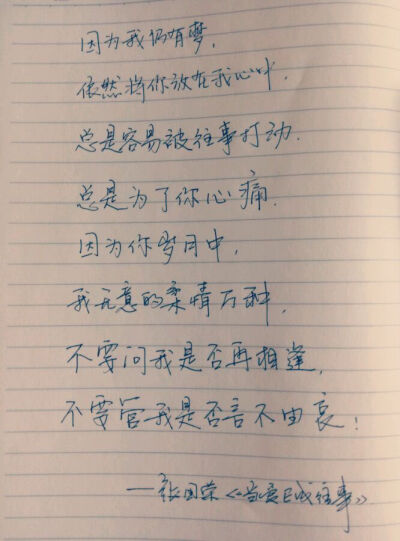 因为我仍有梦,
依然将你放在我心中.
总是容易被往事打动.
总是为了你心痛.
因为你岁月中,
我无意的柔情万种,
不要问我是否再相逢,
不要管我是否言不由衷!
——张国荣《当爱已成往事》